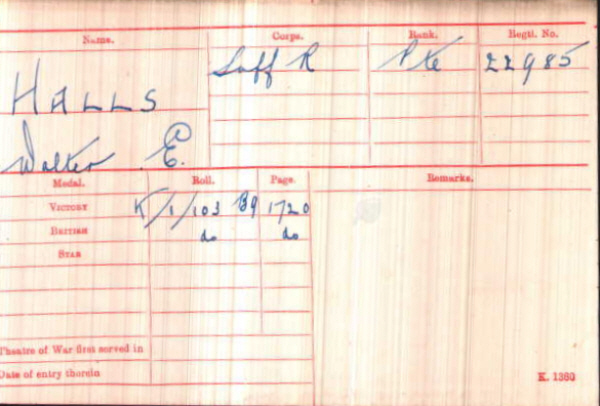 Name. Corps. Rank. Regtl. No.
HALLS Suff R Pte 22985
Walter E.
Medal. Roll. Page. Remarks.
VICTORY K/1/103 B9 1720
BRITISH do do
STAR
Theatre of War first served in
Date of entry therein
K. 1380